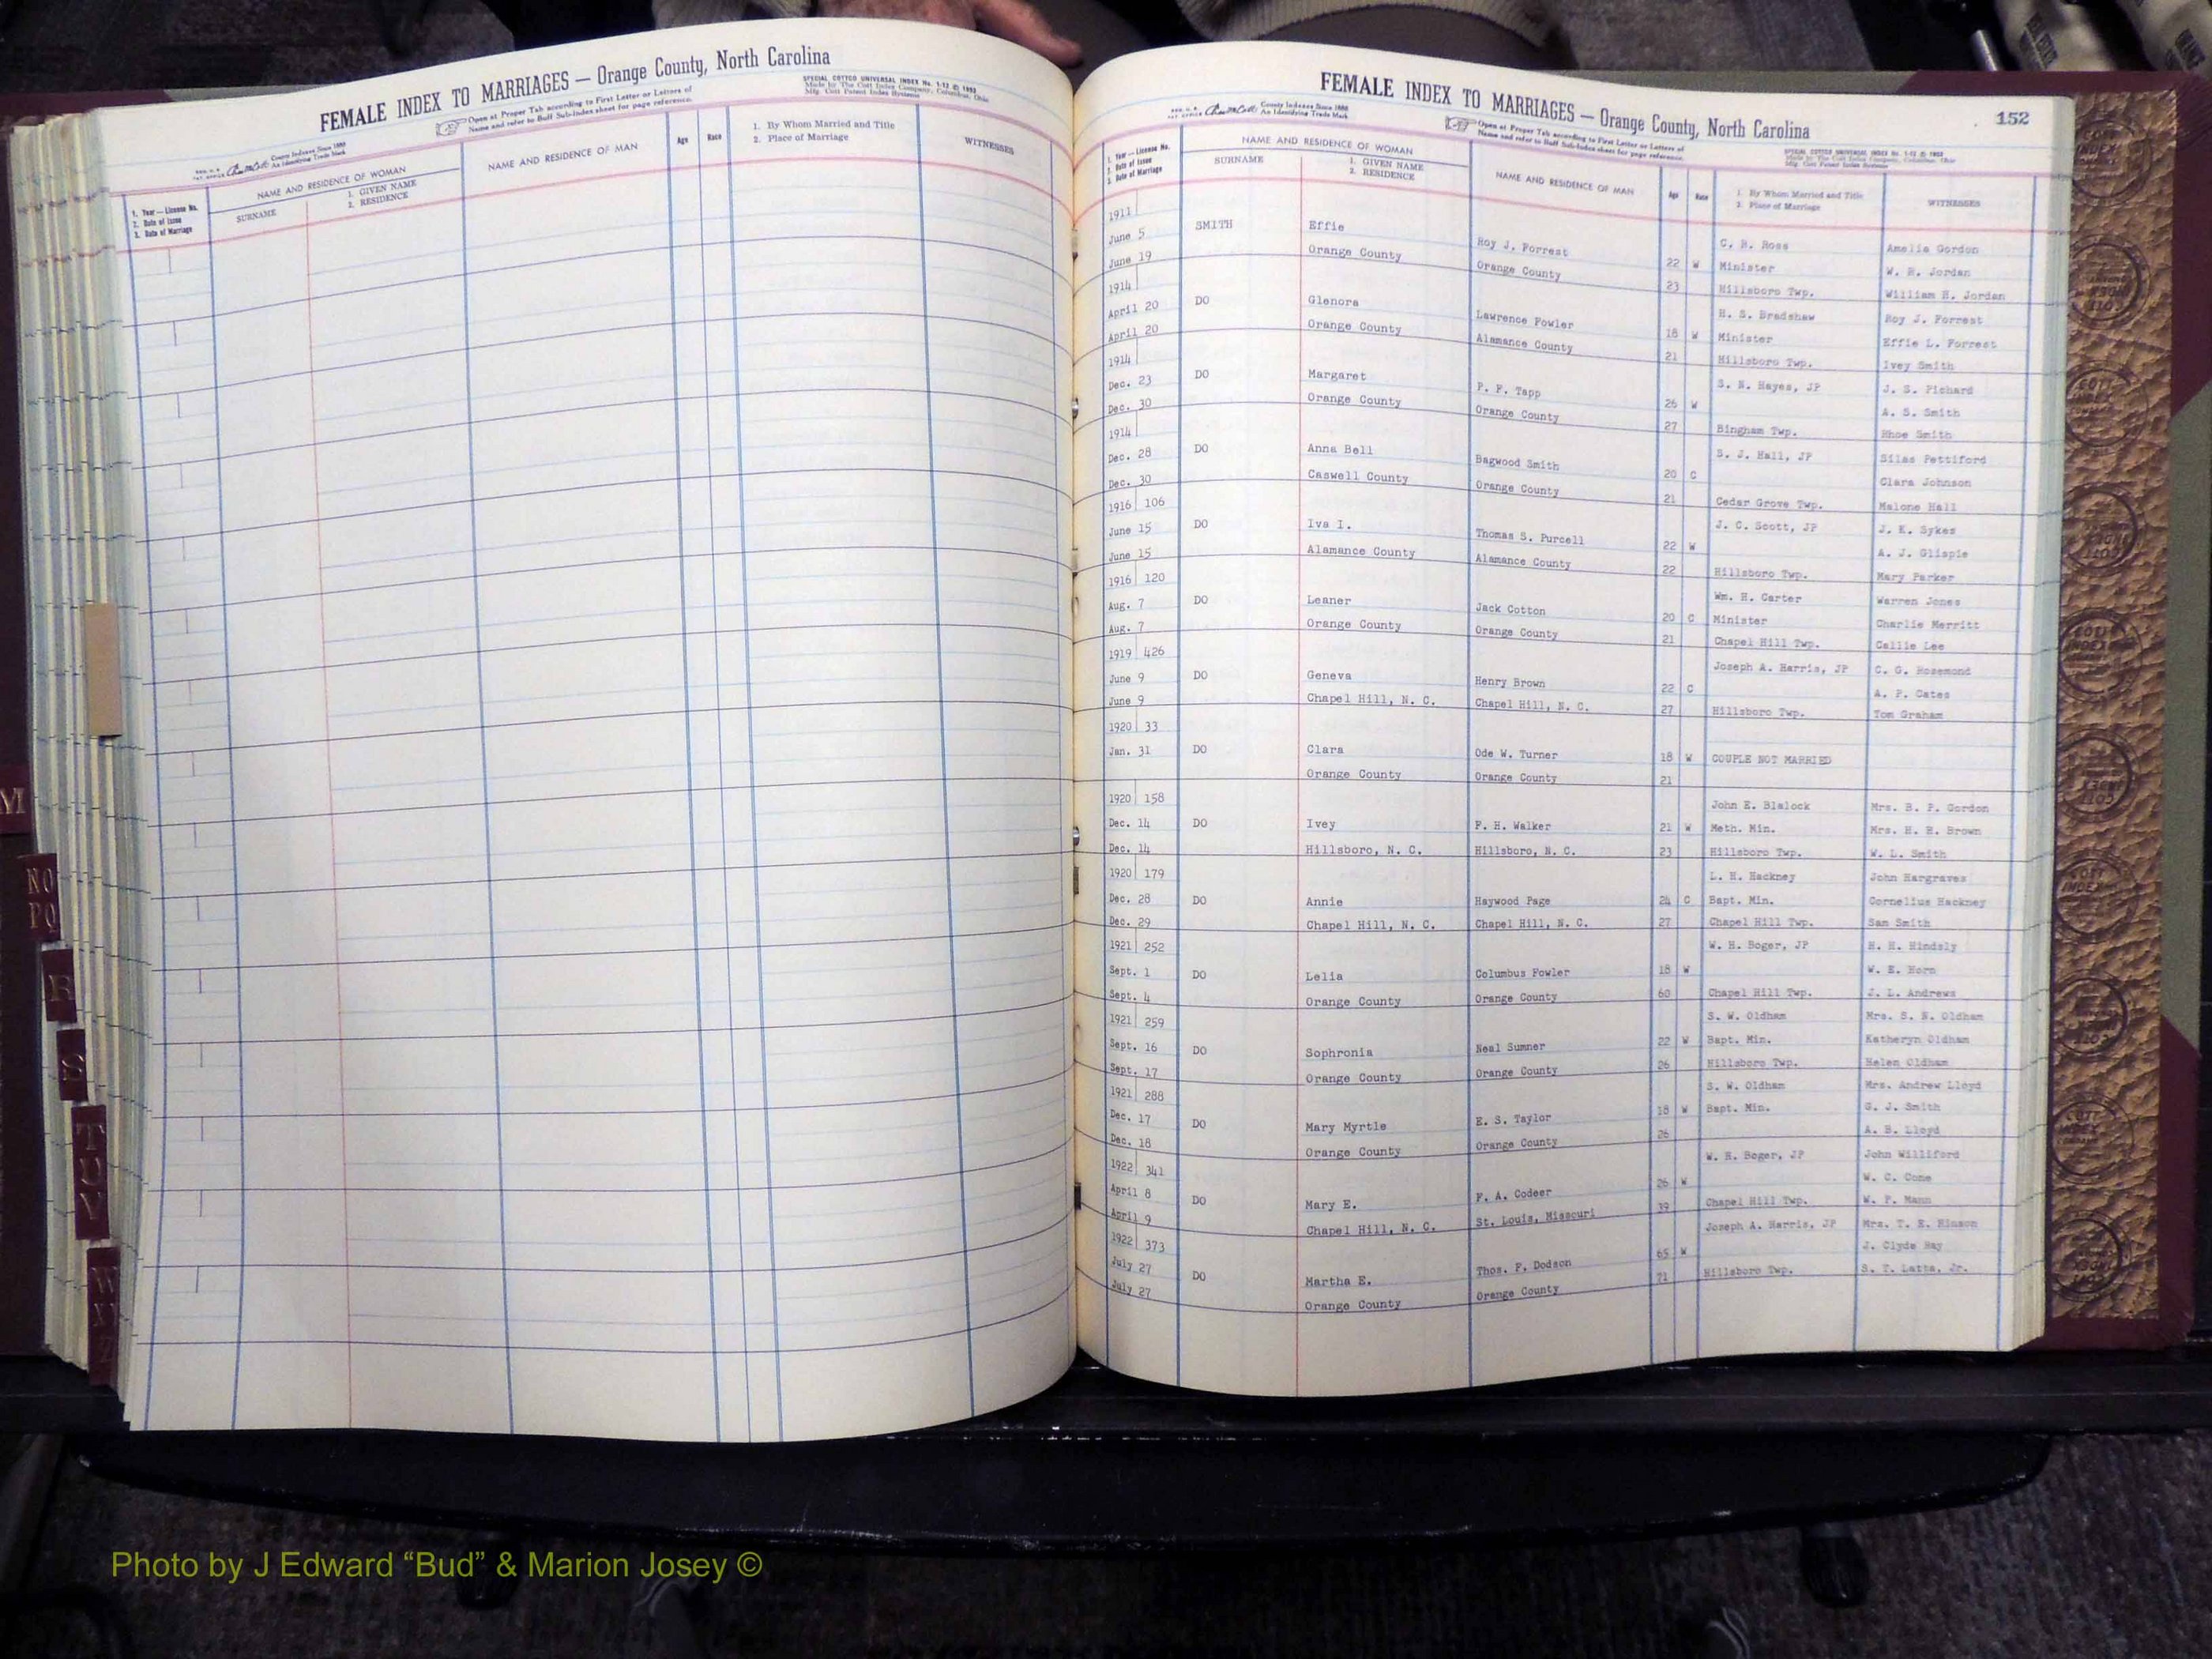 FEMALE INDEX TO MARRIAGES — Orange County, North Carolina
Open at Proper Tab according to First Letter or Letters of
Name and refer to Buff Sub-Index sheet for page reference.
SPECIAL COTTCO UNIVERSAL INDEX No. 1-12 © 1953
Made by The Cott Index Company, Columbus, Ohio
County Indexes Since 1888
An Identifying Trade Mark
1. Year — License No.
2. Date of Issue
3. Date of Marriage
NAME AND RESIDENCE OF WOMAN
SURNAME
1. GIVEN NAME
2. RESIDENCE
NAME AND RESIDENCE OF MAN
Age
Race
1. By Whom Married and Title
2. Place of Marriage
WITNESSES
FEMALE INDEX TO MARRIAGES — Orange County, North Carolina
152
County Indexes Since 1888
An Identifying Trade Mark
Open at Proper Tab according to First Letter or Letters of
Name and refer to Buff Sub-Index sheet for page reference.
1. Year — License No.
2. Date of Issue
3. Date of Marriage
NAME AND RESIDENCE OF WOMAN
SURNAME
1. GIVEN NAME
2. RESIDENCE
NAME AND RESIDENCE OF MAN
Age
Race
1. By Whom Married and Title
2. Place of Marriage
WITNESSES
1911 C. R. Ross Amelia Gordon
June 5 SMITH Effie Roy J. Forrest 22 W Minister W. R. Jordan
June 19 Orange County Orange County 23 Hillsboro Twp. William H. Jordan
1914 H. S. Bradshaw Roy J. Forrest
April 20 DO Glenora Lawrence Fowler 18 W Minister Effie L. Forrest
April 20 Orange County Alamance County 21 Hillsboro Twp. Ivey Smith
1914 S. N. Hayes, JP J. S. Pichard
Dec. 23 DO Margaret P. F. Tapp 26 W A. S. Smith
Dec. 30 Orange County Orange County 27 Bingham Twp. Rhoe Smith
1914 S. J. Hall, JP Silas Pettiford
Dec. 28 DO Anna Bell Bagwood Smith 20 C Clara Johnson
Dec. 30 Caswell County Orange County 21 Cedar Grove Twp. Malone Hall
1916 106 J. C. Scott, JP J. K. Sykes
June 15 DO Iva I. Thomas S. Purcell 22 W A. J. Glispie
June 15 Alamance County Alamance County 22 Hillsboro Twp. Mary Parker
1916 120 Wm. H. Carter Warren Jones
Aug. 7 DO Leaner Jack Cotton 20 C Minister Charlie Merritt
Aug. 7 Orange County Orange County 21 Chapel Hill Twp. Callie Lee
1919 426 Joseph A. Harris, JP C. G. Rosemond
June 9 DO Geneva Henry Brown 22 C A. P. Cates
June 9 Chapel Hill, N. C. Chapel Hill, N. C. 27 Hillsboro Twp. Tom Graham
1920 33
Jan. 31 DO Clara Ode W. Turner 18 W COUPLE NOT MARRIED
Orange County Orange County 21
1920 158 John E. Blalock Mrs. B. P. Gordon
Dec. 14 DO Ivey F. H. Walker 21 W Meth. Min. Mrs. H. E. Brown
Dec. 14 Hillsboro, N. C. Hillsboro, N. C. 23 Hillsboro Twp. W. L. Smith
1920 179 L. H. Hackney John Hargraves
Dec. 28 DO Annie Haywood Page 24 C Bapt. Min. Cornelius Hackney
Dec. 29 Chapel Hill, N. C. Chapel Hill, N. C. 27 Chapel Hill Twp. Sam Smith
1921 252 W. H. Boger, JP H. H. Hindsly
Sept. 1 DO Lelia Columbus Fowler 18 W W. E. Horn
Sept. 4 Orange County Orange County 60 Chapel Hill Twp. J. L. Andrews
1921 259 S. W. Oldham Mrs. S. N. Oldham
Sept. 16 DO Sophronia Neal Sumner 22 W Bapt. Min. Katheryn Oldham
Sept. 17 Orange County Orange County 26 Hillsboro Twp. Helen Oldham
1921 288 S. W. Oldham Mrs. Andrew Lloyd
Dec. 17 DO Mary Myrtle E. S. Taylor 18 W Bapt. Min. G. J. Smith
Dec. 18 Orange County Orange County 26 A. B. Lloyd
1922 341 W. H. Boger, JP John Williford
April 8 DO Mary E. F. A. Codeer 26 W W. C. Cone
April 9 Chapel Hill, N. C. St. Louis, Missouri 39 Chapel Hill Twp. W. P. Mann
1922 373 Joseph A. Harris, JP Mrs. T. E. Hinson
July 27 DO Martha E. Thos. F. Dodson 65 W J. Clyde Ray
July 27 Orange County Orange County 71 Hillsboro Twp. S. T. Latta, Jr.
M
NO
PQ
R
S
T
U
V
W
XY
Z
Photo by J Edward “Bud” & Marion Josey ©